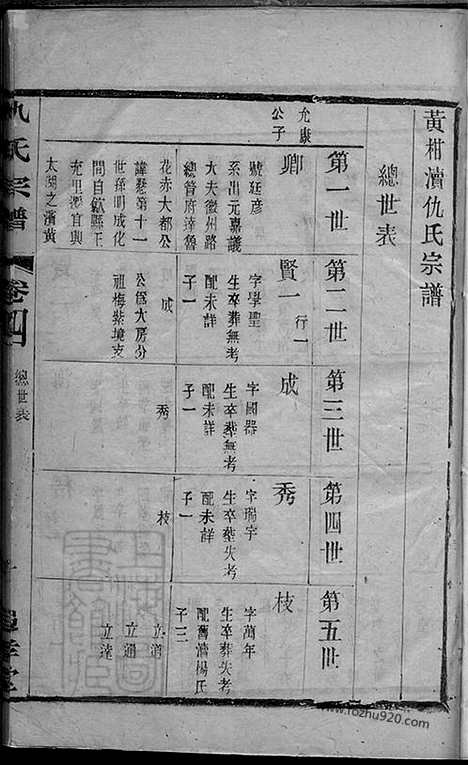 黃柑瀆仇氏宗譜
總世表
第一世
允康公子
卿
號廷彦
系出元嘉議
大夫徽州路
總管府達魯
花赤大都公
諱懸第十一
世孫明成化
間自歙縣王
充里遷宜興
太湖之濱黃
第二世
賢一 行一
字學聖
生卒葬無考
配未詳
子一
成
公爲大房分
祖梅紫境支
第三世
成
字國器
生卒葬無考
配未詳
子一
秀
第四世
秀
字瑞宇
生卒塟失考
配未詳
子一
枝
第五世
枝
字萬年
生卒葬失考
配舊瀆楊氏
子三
立道
立通
立達
仇氏宗譜
卷四
總世表
上海圖書館藏
www.rozhu920.com